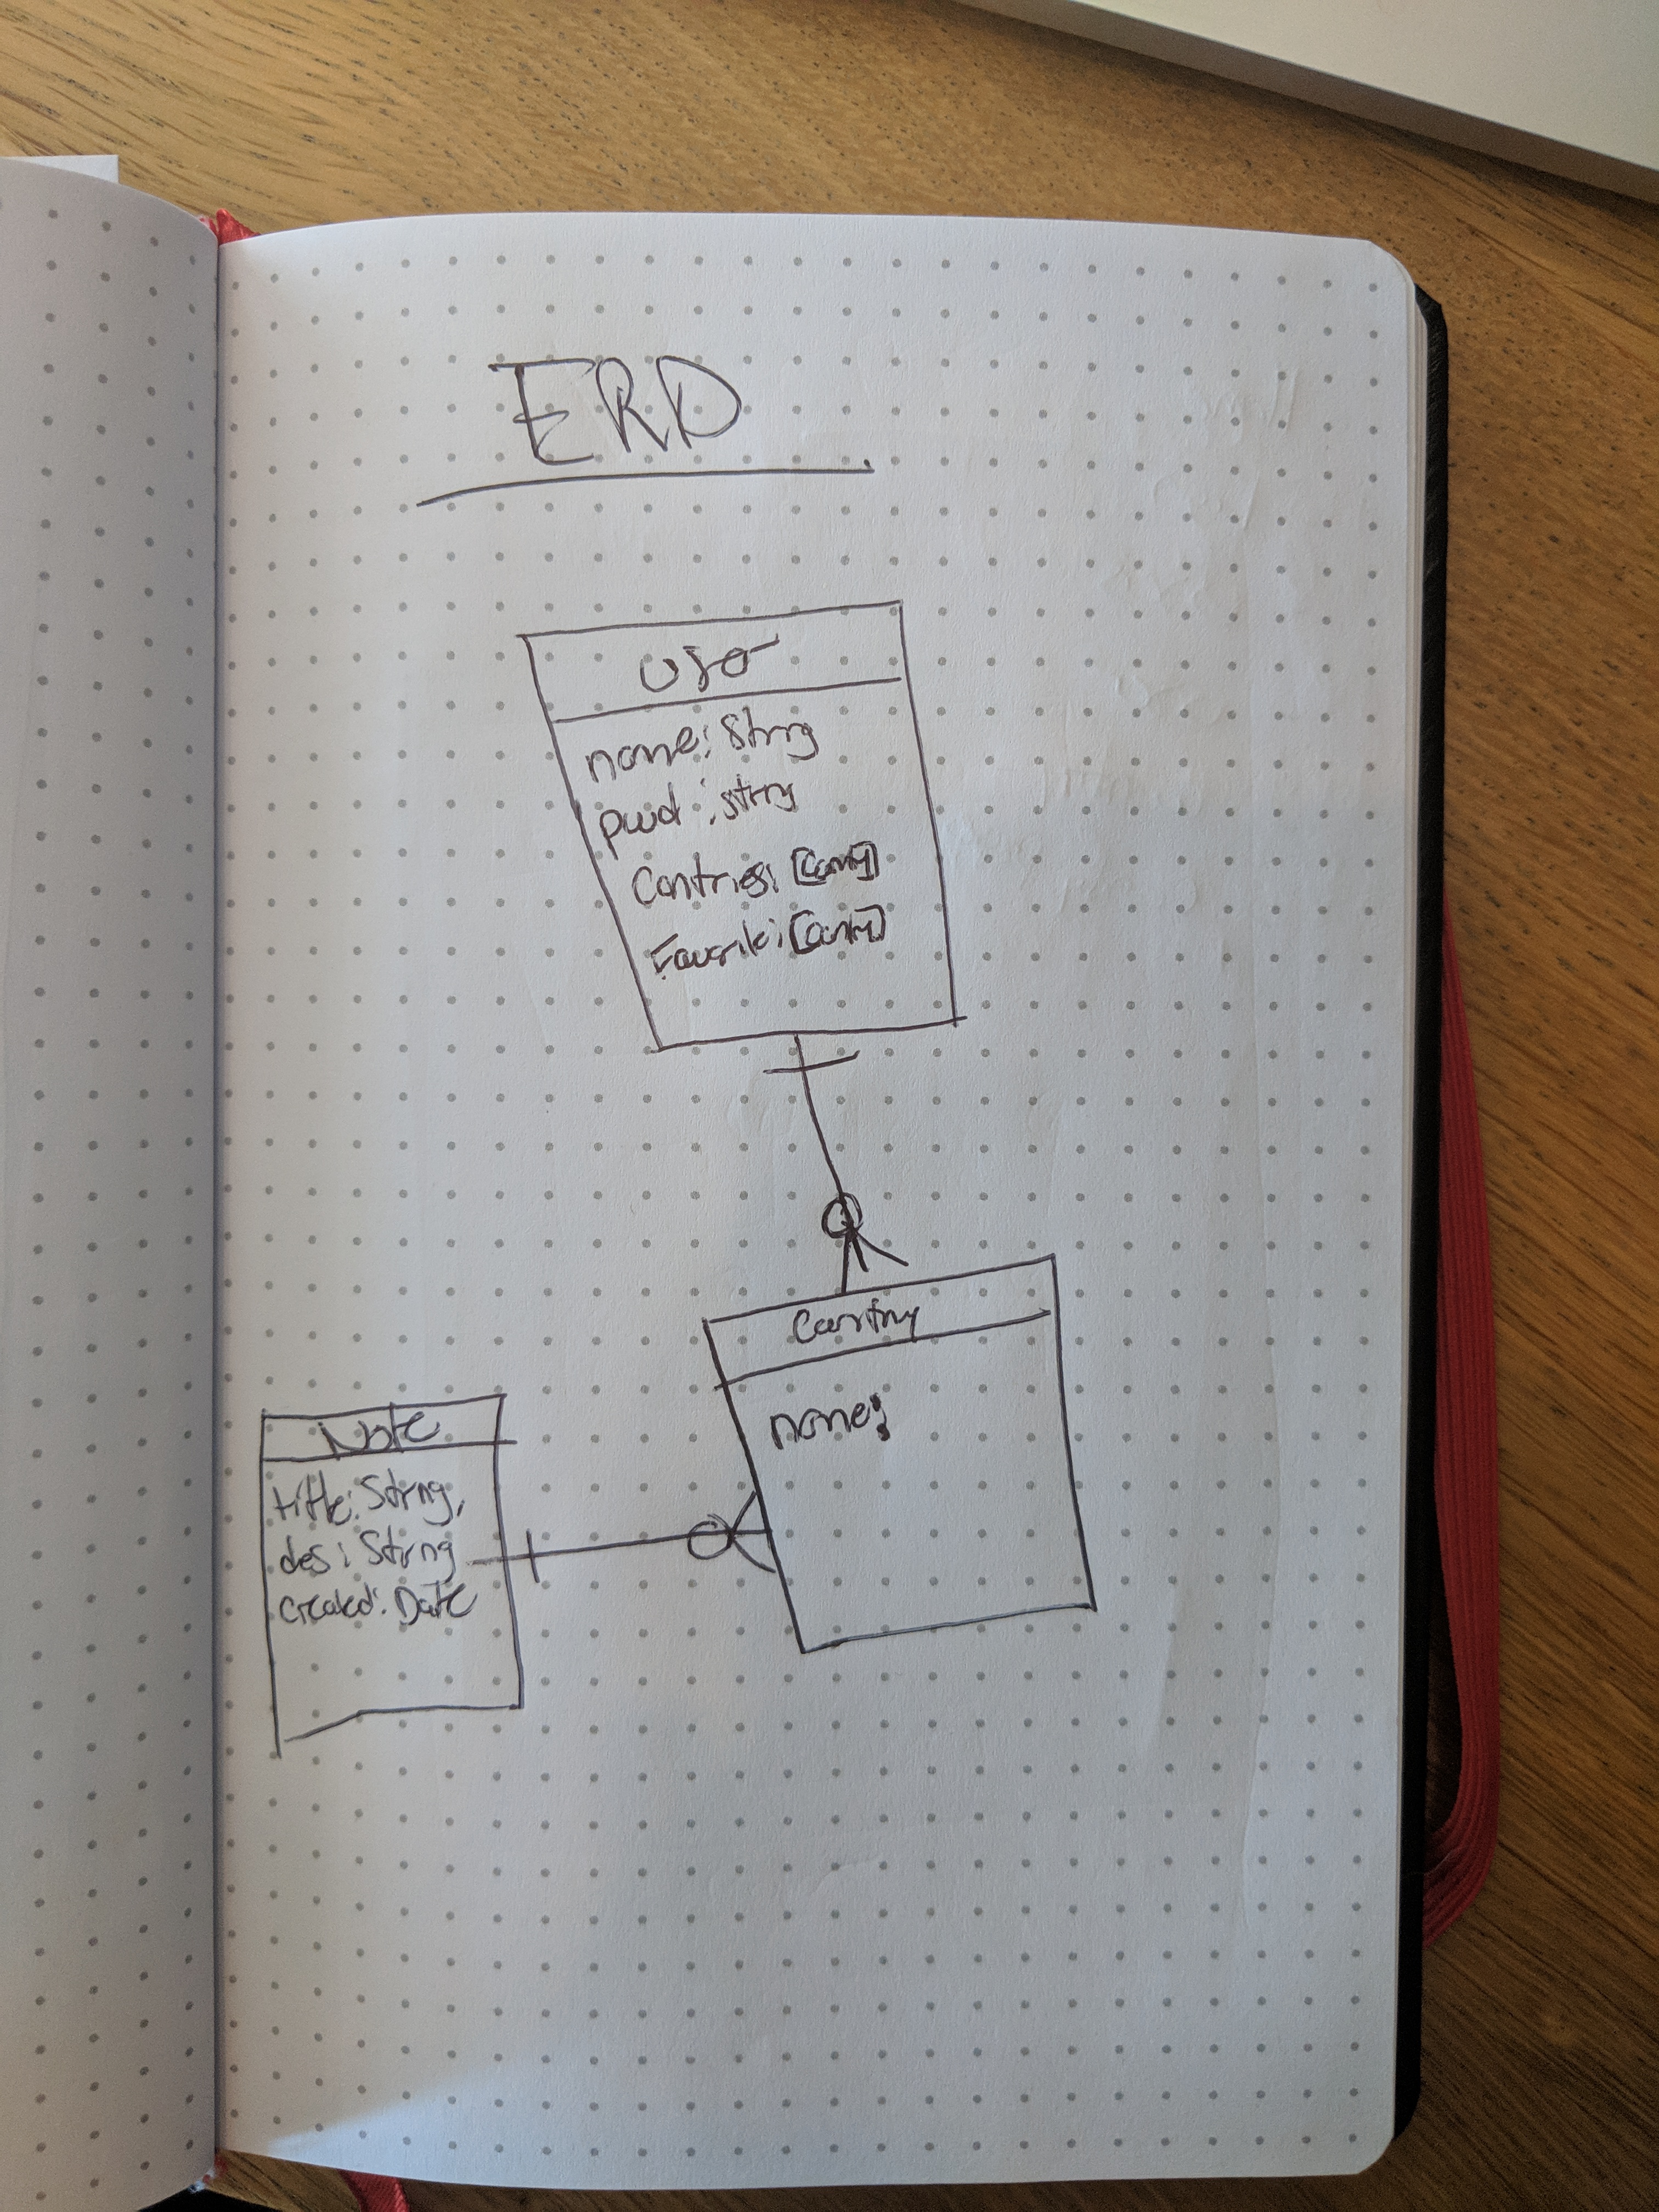 ERD
User
name: String
pwd: String
Contries: [Country]
Favorite: [Country]
Country
name:
Note
title: String,
des: String
created: Date